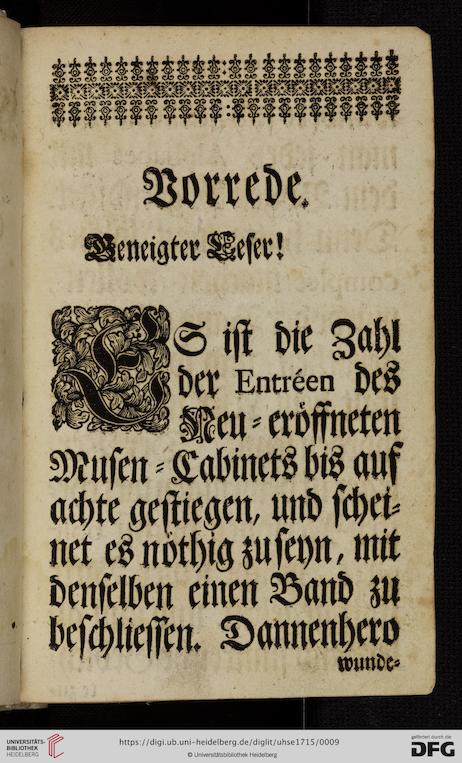 Vorrede.
Geneigter Leser!
ES ist die Zahl
der Entréen des
Neu-eröffneten
Musen-Cabinets bis auf
achte gestiegen, und schei-
net es nöthig zu seyn, mit
denselben einen Band zu
beschliessen. Dannenhero
wunde-
UNIVERSITÄTS-
BIBLIOTHEK
HEIDELBERG
https://digi.ub.uni-heidelberg.de/diglit/uhse1715/0009
© Universitätsbibliothek Heidelberg
gefördert durch die
DFG